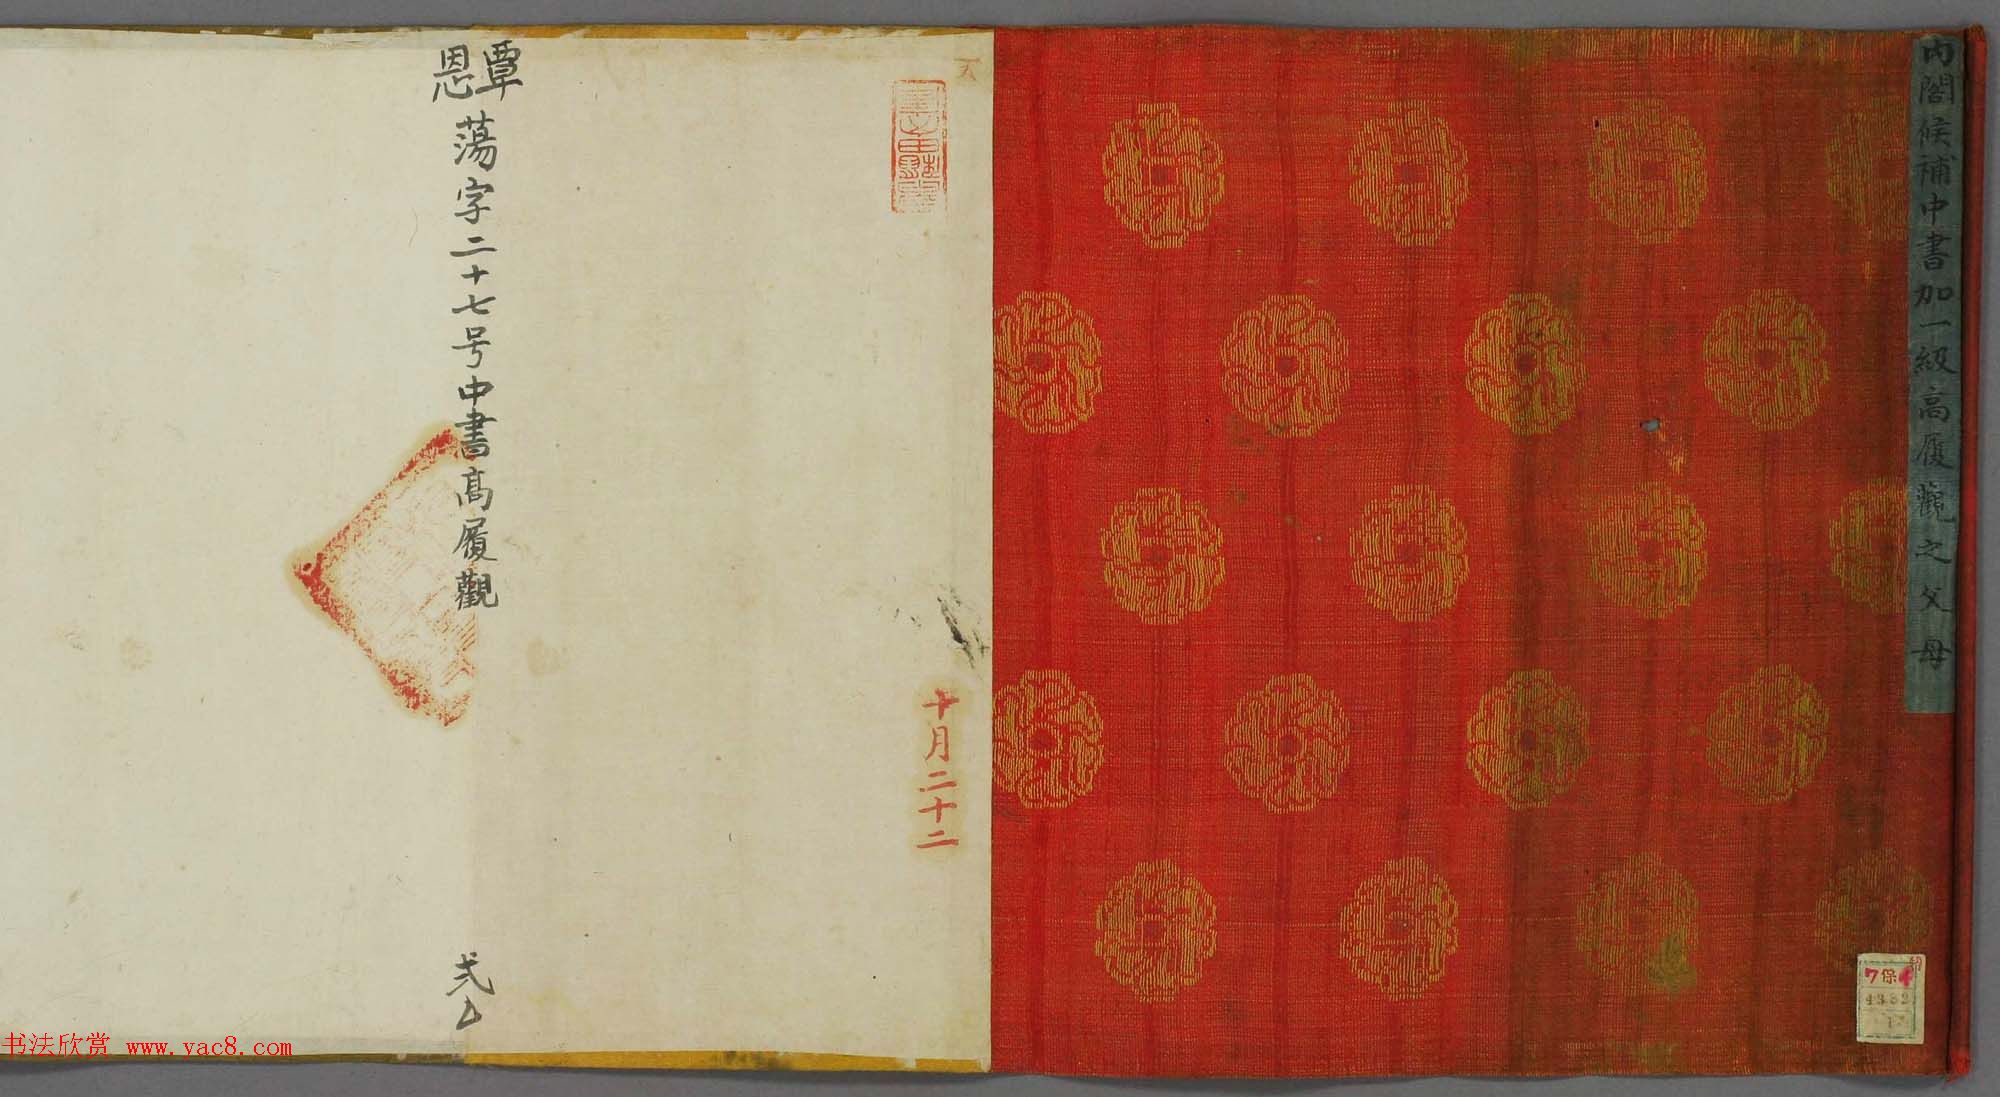 内閣候補中書加一級高履觀之父母
十月二十二
覃
恩蕩字二十七号中書高履觀
弍
7保4
4382
1
书法欣赏 www.yac8.com